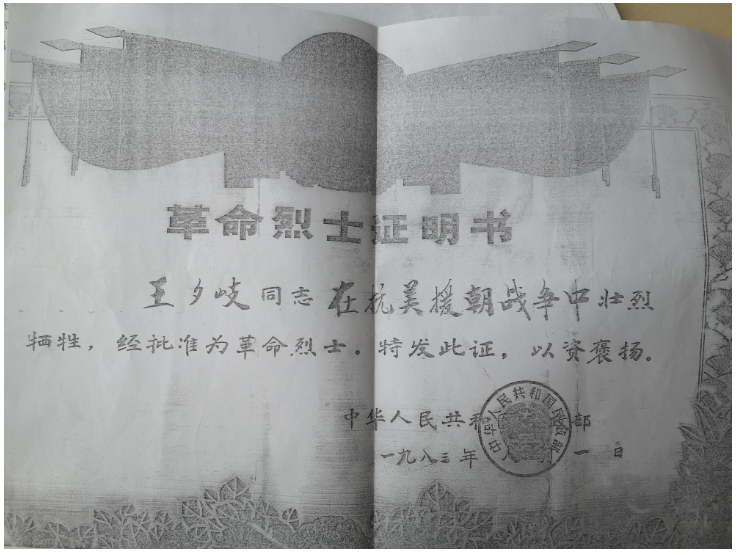 革命烈士证明书
王夕岐同志在抗美援朝战争中壮烈
牺牲，经批准为革命烈士。特发此证，以资褒扬。
中华人民共和国 政部
中华人民共和国民政部
一九八三年八月一日